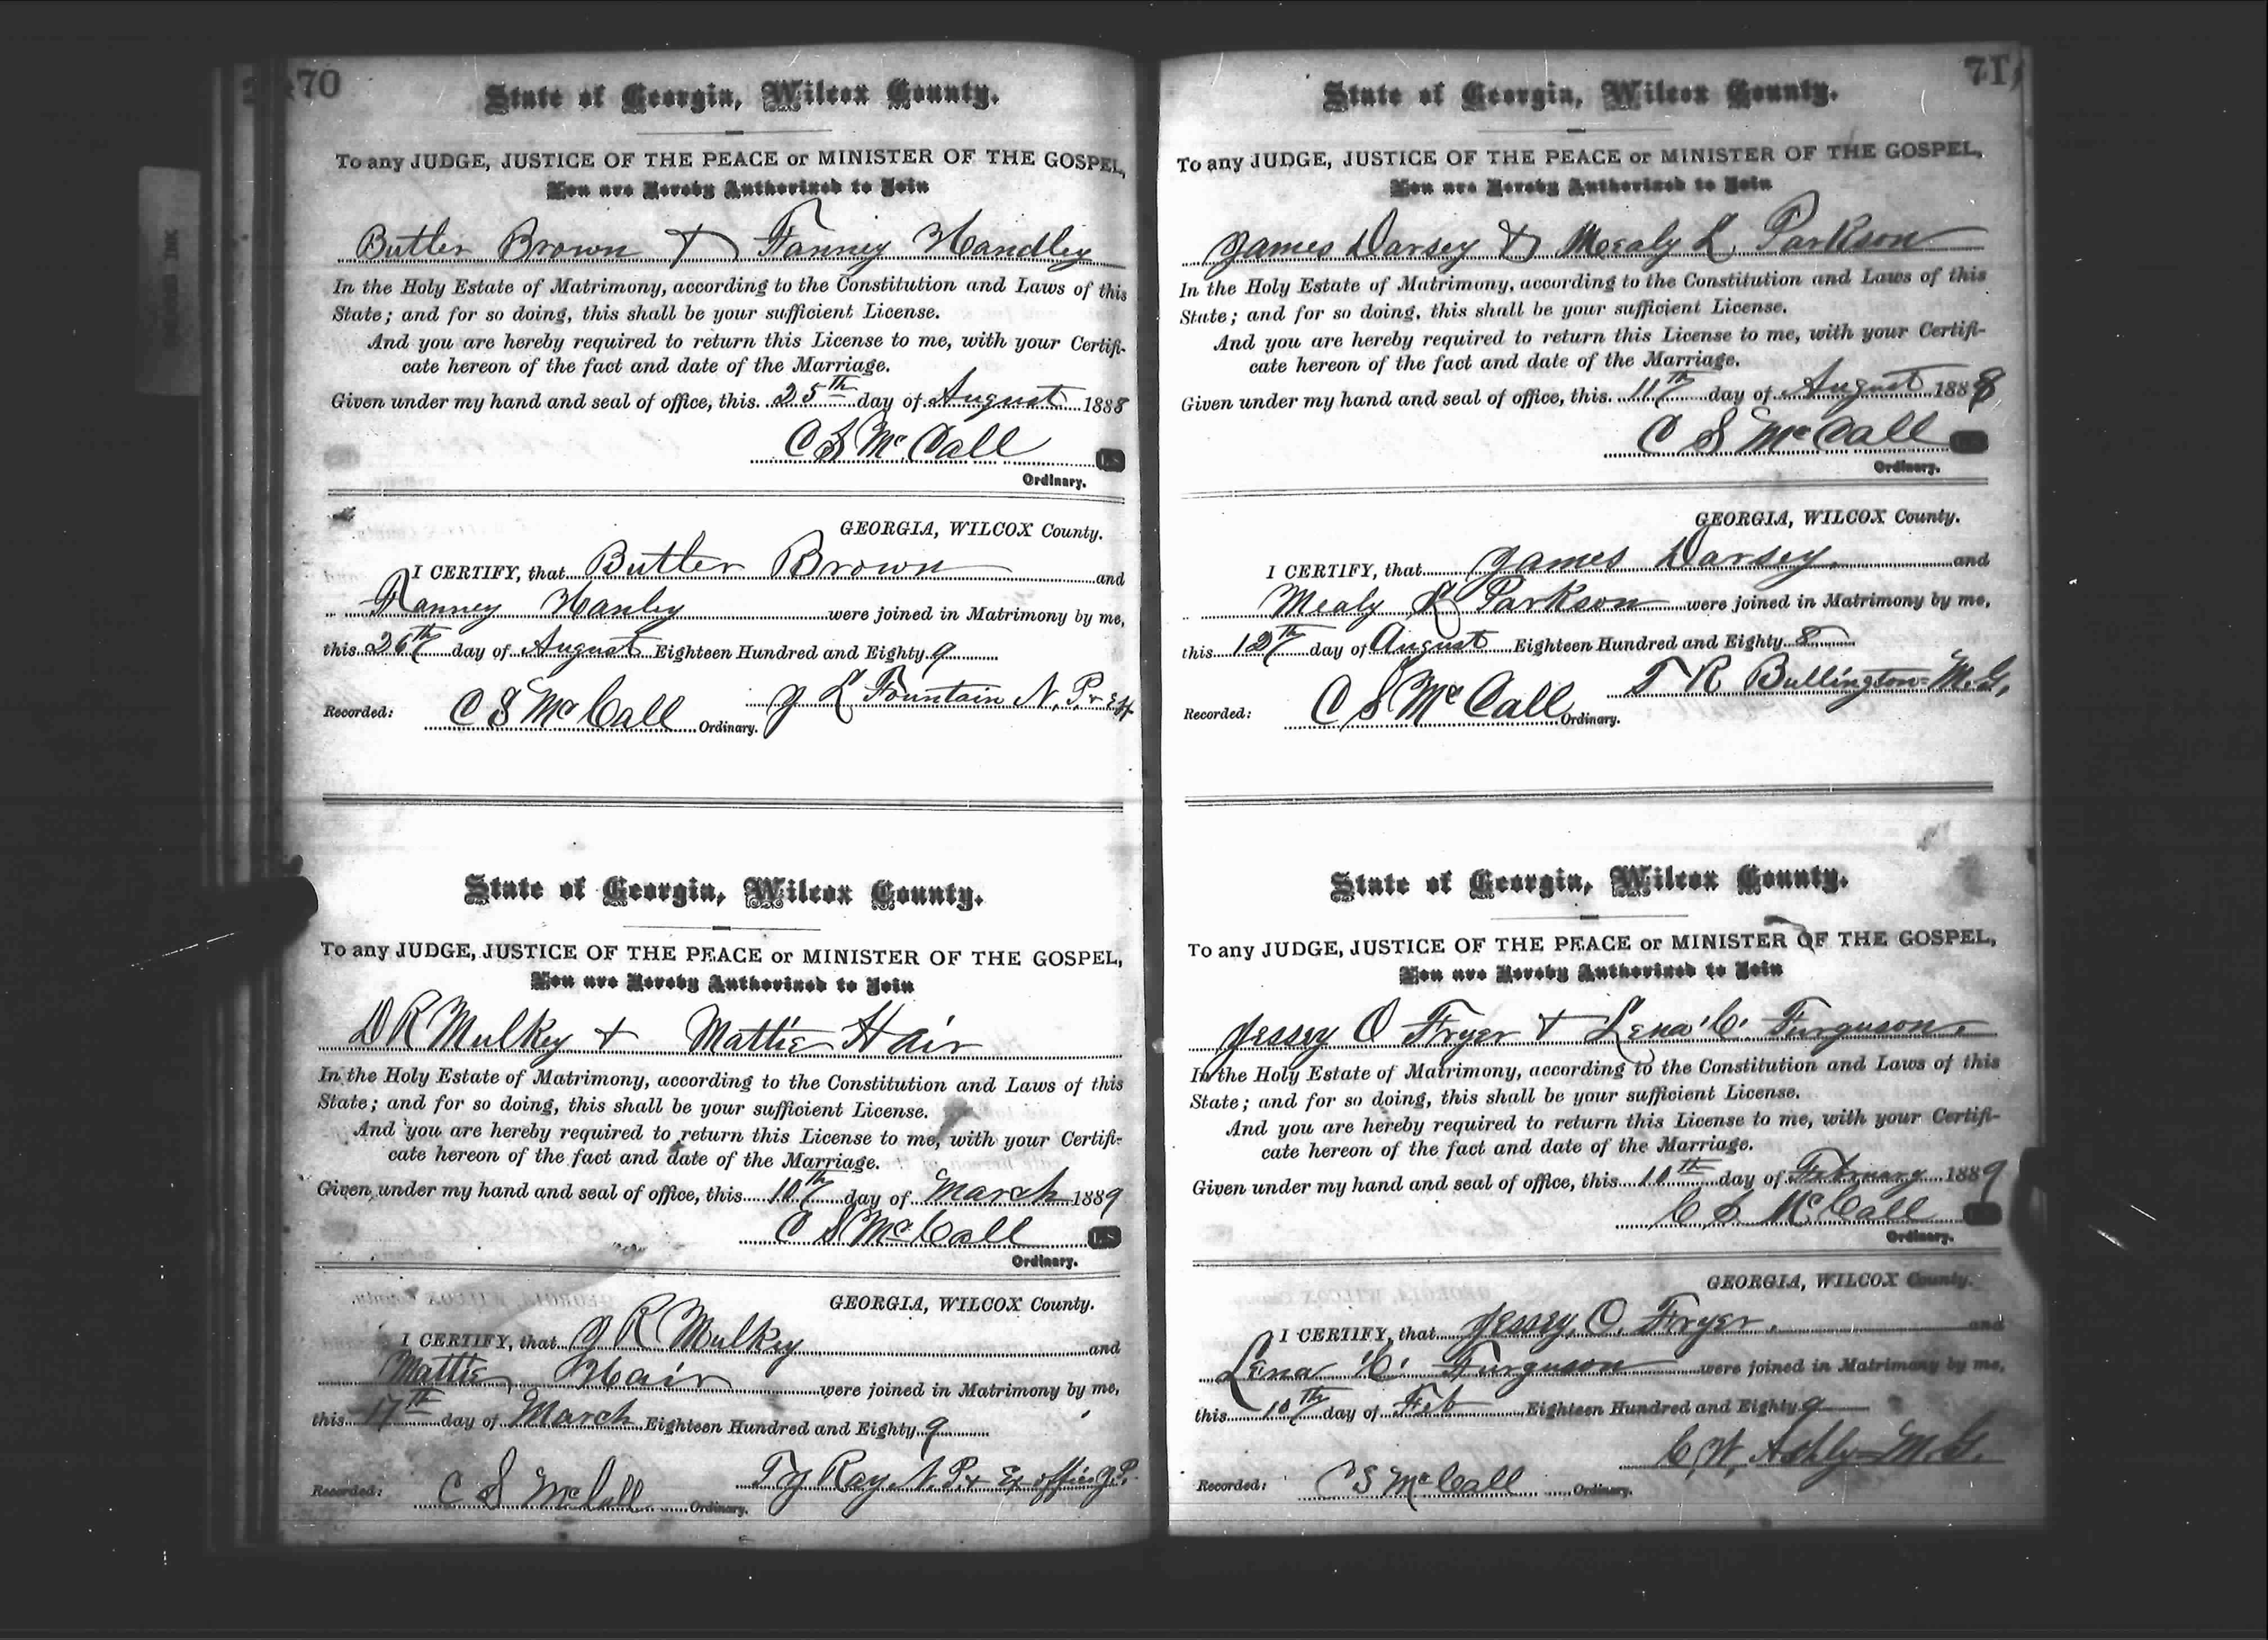 70
State of Georgia, Wilcox County.
To any JUDGE, JUSTICE OF THE PEACE or MINISTER OF THE GOSPEL,
You are Hereby Authorized to Join
Butler Brown & Fanney Handley
In the Holy Estate of Matrimony, according to the Constitution and Laws of this
State; and for so doing, this shall be your sufficient License.
And you are hereby required to return this License to me, with your Certifi-
cate hereon of the fact and date of the Marriage.
Given under my hand and seal of office, this 25th day of August 1888
C S McCall LS
Ordinary.
GEORGIA, WILCOX County.
I CERTIFY, that Butler Brown and
Fanney Hanley were joined in Matrimony by me,
this 26th day of August Eighteen Hundred and Eighty 9
J L Fountain N. P. &
Recorded: C S McCall Ordinary.
State of Georgia, Wilcox County.
To any JUDGE, JUSTICE OF THE PEACE or MINISTER OF THE GOSPEL,
You are Hereby Authorized to Join
D R Mulkey & Mattie Hair
In the Holy Estate of Matrimony, according to the Constitution and Laws of this
State; and for so doing, this shall be your sufficient License.
And you are hereby required to return this License to me, with your Certifi-
cate hereon of the fact and date of the Marriage.
Given under my hand and seal of office, this 10th day of March 1889
C S McCall LS
Ordinary.
GEORGIA, WILCOX County.
I CERTIFY, that J R Mulkey and
Mattie Hair were joined in Matrimony by me,
this 17th day of March Eighteen Hundred and Eighty 9
T J Ray N. P. & Ex officio J.P.
Recorded: C S McCall Ordinary.
71
State of Georgia, Wilcox County.
To any JUDGE, JUSTICE OF THE PEACE or MINISTER OF THE GOSPEL,
You are Hereby Authorized to Join
James Darsey & Mealy L Parkson
In the Holy Estate of Matrimony, according to the Constitution and Laws of this
State; and for so doing, this shall be your sufficient License.
And you are hereby required to return this License to me, with your Certifi-
cate hereon of the fact and date of the Marriage.
Given under my hand and seal of office, this 11th day of August 1888
C S McCall
Ordinary.
GEORGIA, WILCOX County.
I CERTIFY, that James Darsey and
Mealy L Parkson were joined in Matrimony by me,
this 12th day of August Eighteen Hundred and Eighty 8
T R Bullington M.G.
Recorded: C S McCall Ordinary.
State of Georgia, Wilcox County.
To any JUDGE, JUSTICE OF THE PEACE or MINISTER OF THE GOSPEL,
You are Hereby Authorized to Join
Jessey O Fryer & Lena C. Furguson.
In the Holy Estate of Matrimony, according to the Constitution and Laws of this
State; and for so doing, this shall be your sufficient License.
And you are hereby required to return this License to me, with your Certifi-
cate hereon of the fact and date of the Marriage.
Given under my hand and seal of office, this 10th day of February 1889
C S McCall
Ordinary.
GEORGIA, WILCOX County.
I CERTIFY, that Jessey O. Fryer. and
Lena C. Furguson were joined in Matrimony by me,
this 10th day of Feb Eighteen Hundred and Eighty 9
C. W. Ashly M.G.
Recorded: C S McCall Ordinary.